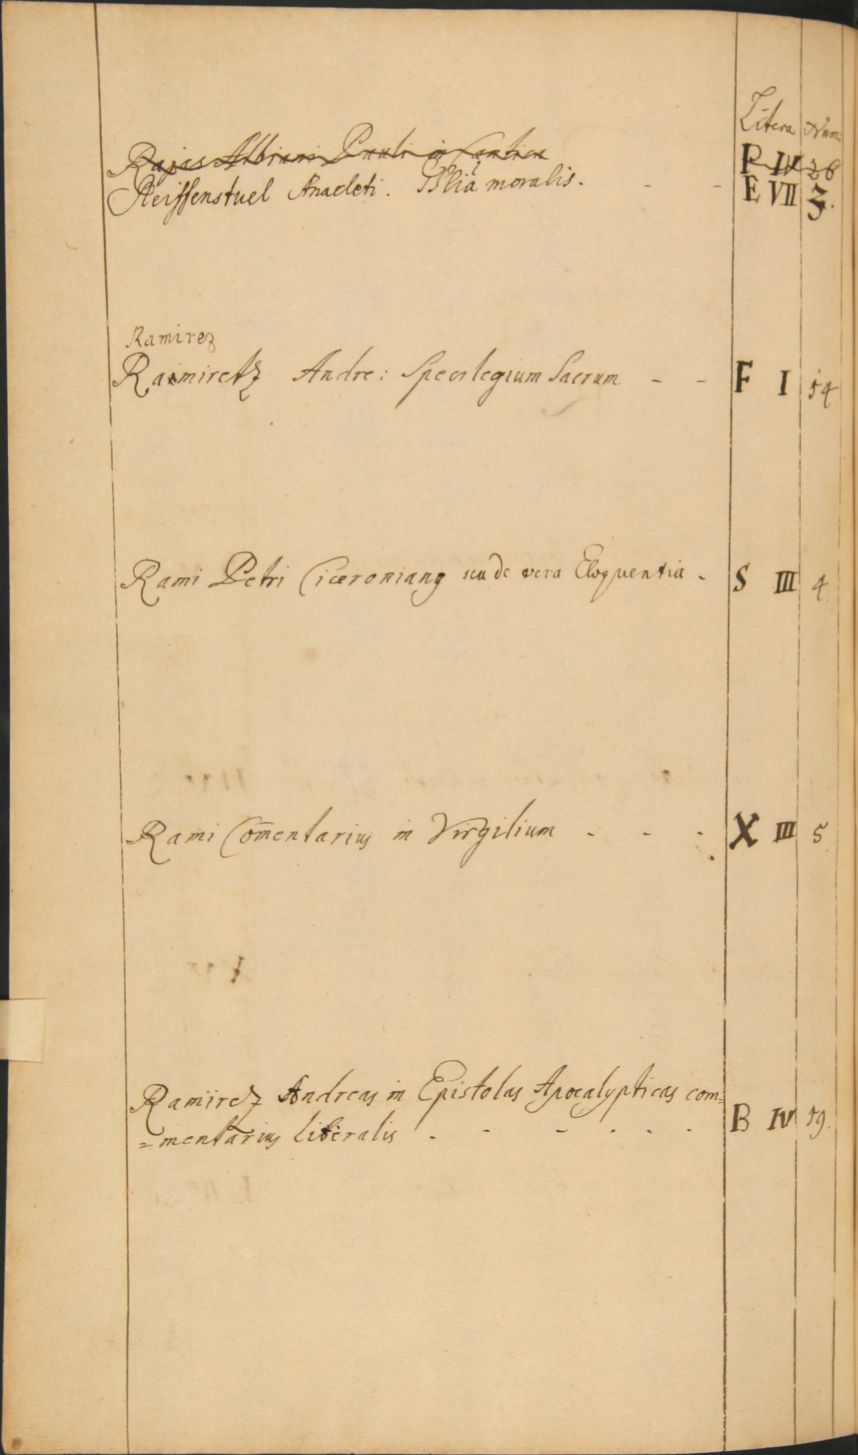 Litera Num
Pauli in Cantica P IV 26
Reiffenstuel Anacleti. Thlia moralis. - - E VII 3.
Ramirez
Raimiretz Andre: Specilegium Sacrum - - F I 14
Rami Petri Ciceronianus seu de vera Eloquentia - S III 4
Rami Comentarius in Virgilium - - - X III 5
Ramirez Andreas in Epistolas Apocalypticas com=
=mentarius literalis - - - - - - B IV 19.